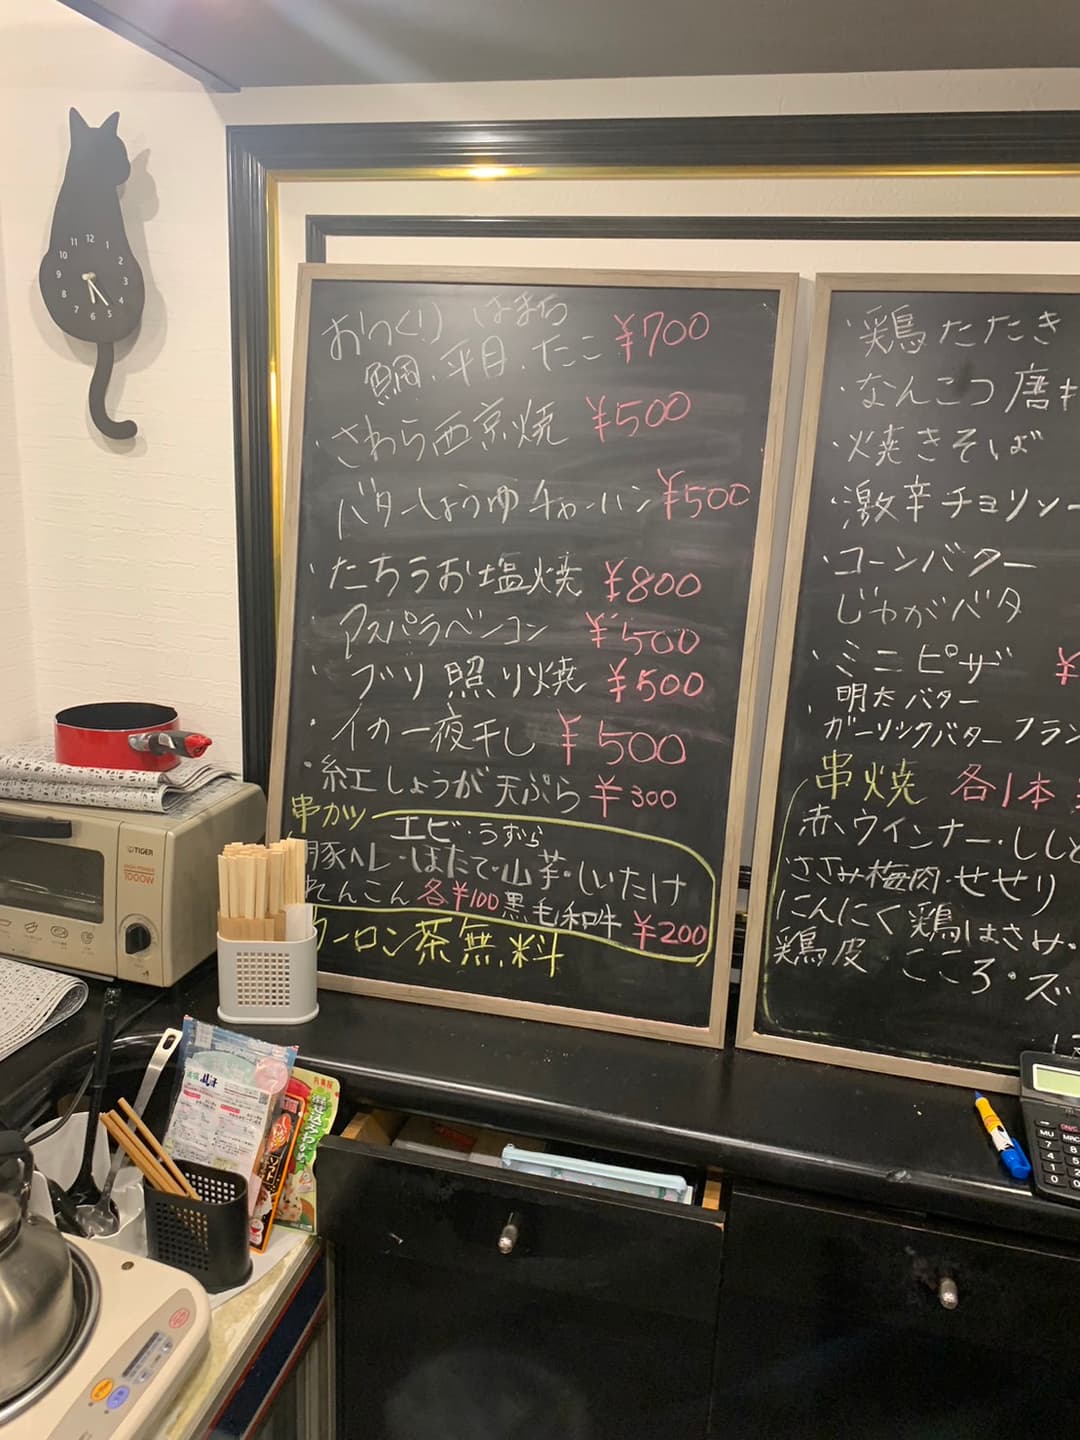 おつくり はまち
鯛・平目・たこ ¥700
・さわら西京焼 ¥500
バターしょうゆチャーハン ¥500
・たちうお塩焼 ¥800
・アスパラベーコン ¥500
・ブリ照り焼 ¥500
・イカ一夜干し ¥500
・紅しょうが天ぷら ¥300
串カツ エビ・うずら
豚ヘレ・ほたて・山芋・しいたけ
れんこん 各¥100 黒毛和牛 ¥200
ウーロン茶無料
・鶏たたき
・なんこつ唐
・焼きそば
・激辛チョリソー
・コーンバター
じゃがバタ
・ミニピザ ¥
明太バター
ガーリックバター フラン
串焼 各1本
赤ウインナー・しし
ささみ梅肉・せせり
にんにく鶏はさみ・
鶏皮 こころ・ズ
11 12 1
10 2
9 3
8 4
7 6 5
TIGER
1000W
混ぜ込みわかめ
MU
7
4
1
0
8
5
2
0